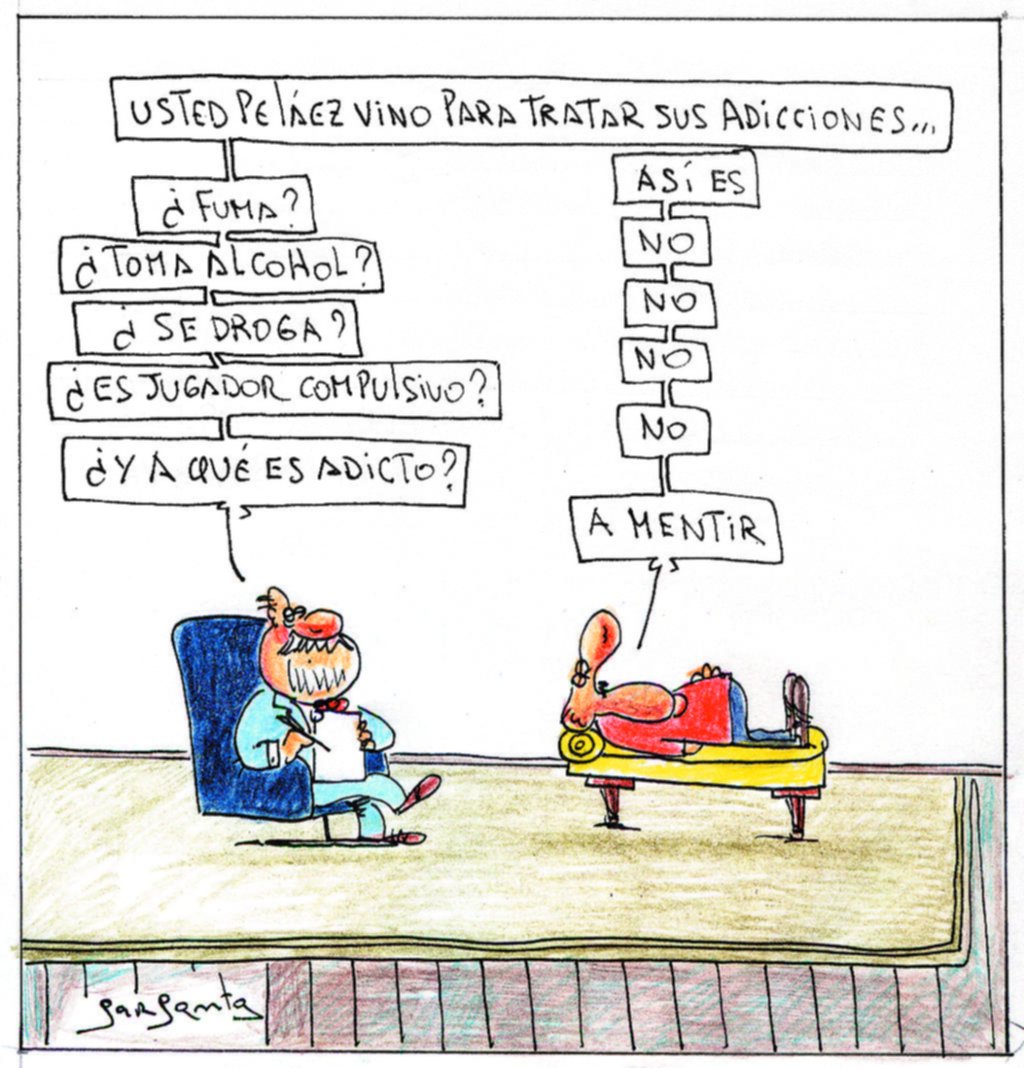 USTED PELÁEZ VINO PARA TRATAR SUS ADICCIONES...
ASÍ ES
¿FUMA?
NO
¿TOMA ALCOHOL?
NO
¿SE DROGA?
NO
¿ES JUGADOR COMPULSIVO?
NO
¿Y A QUÉ ES ADICTO?
A MENTIR
garganta